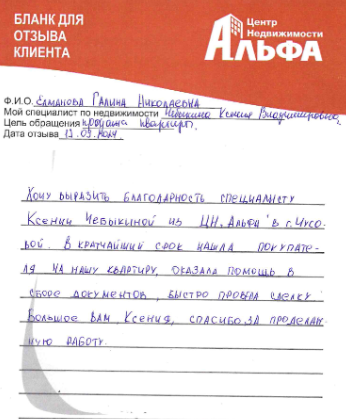 БЛАНК ДЛЯ
ОТЗЫВА
КЛИЕНТА
Центр
Недвижимости
АЛЬФА
Ф.И.О. Елманова Галина Николаевна
Мой специалист по недвижимости Чебыкина Ксения Владимировна,
Цель обращения продажа квартиры.
Дата отзыва 13.09.2024
Хочу выразить благодарность специалисту
Ксении Чебыкиной из ЦН "Альфа" в г. Чусо-
вой. В кратчайший срок нашла покупате-
ля на нашу квартиру, оказала помощь в
сборе документов, быстро провела сделку
Большое Вам, Ксения, спасибо за проделан
ную работу.